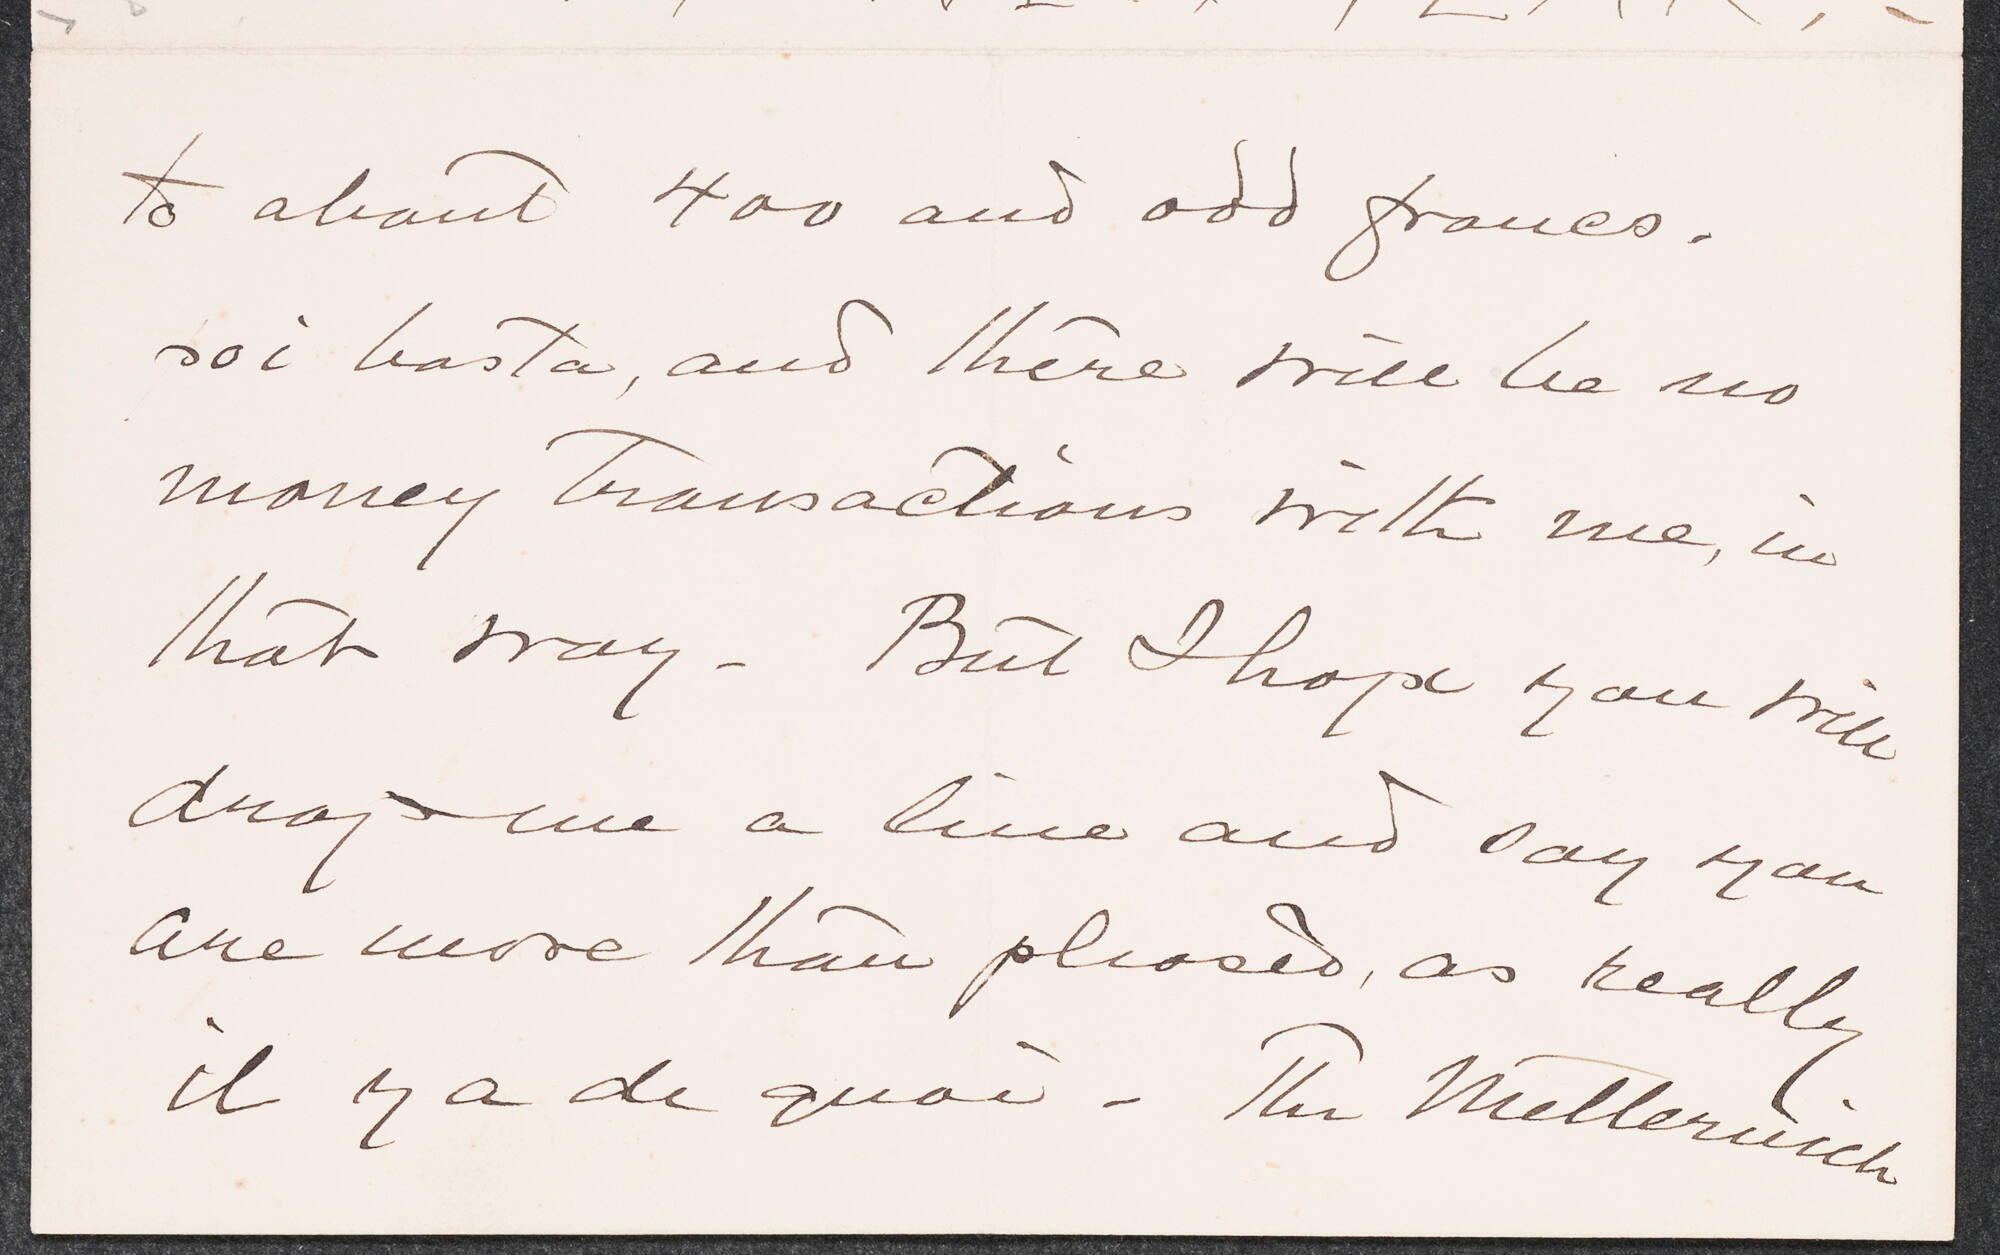 to about 400 and odd francs.
soi basta, and there will be no
money transactions with me, in
that way - But I hope you will
drop me a line and say you
are more than pleased, as really
il y a de quoi - The Metternich